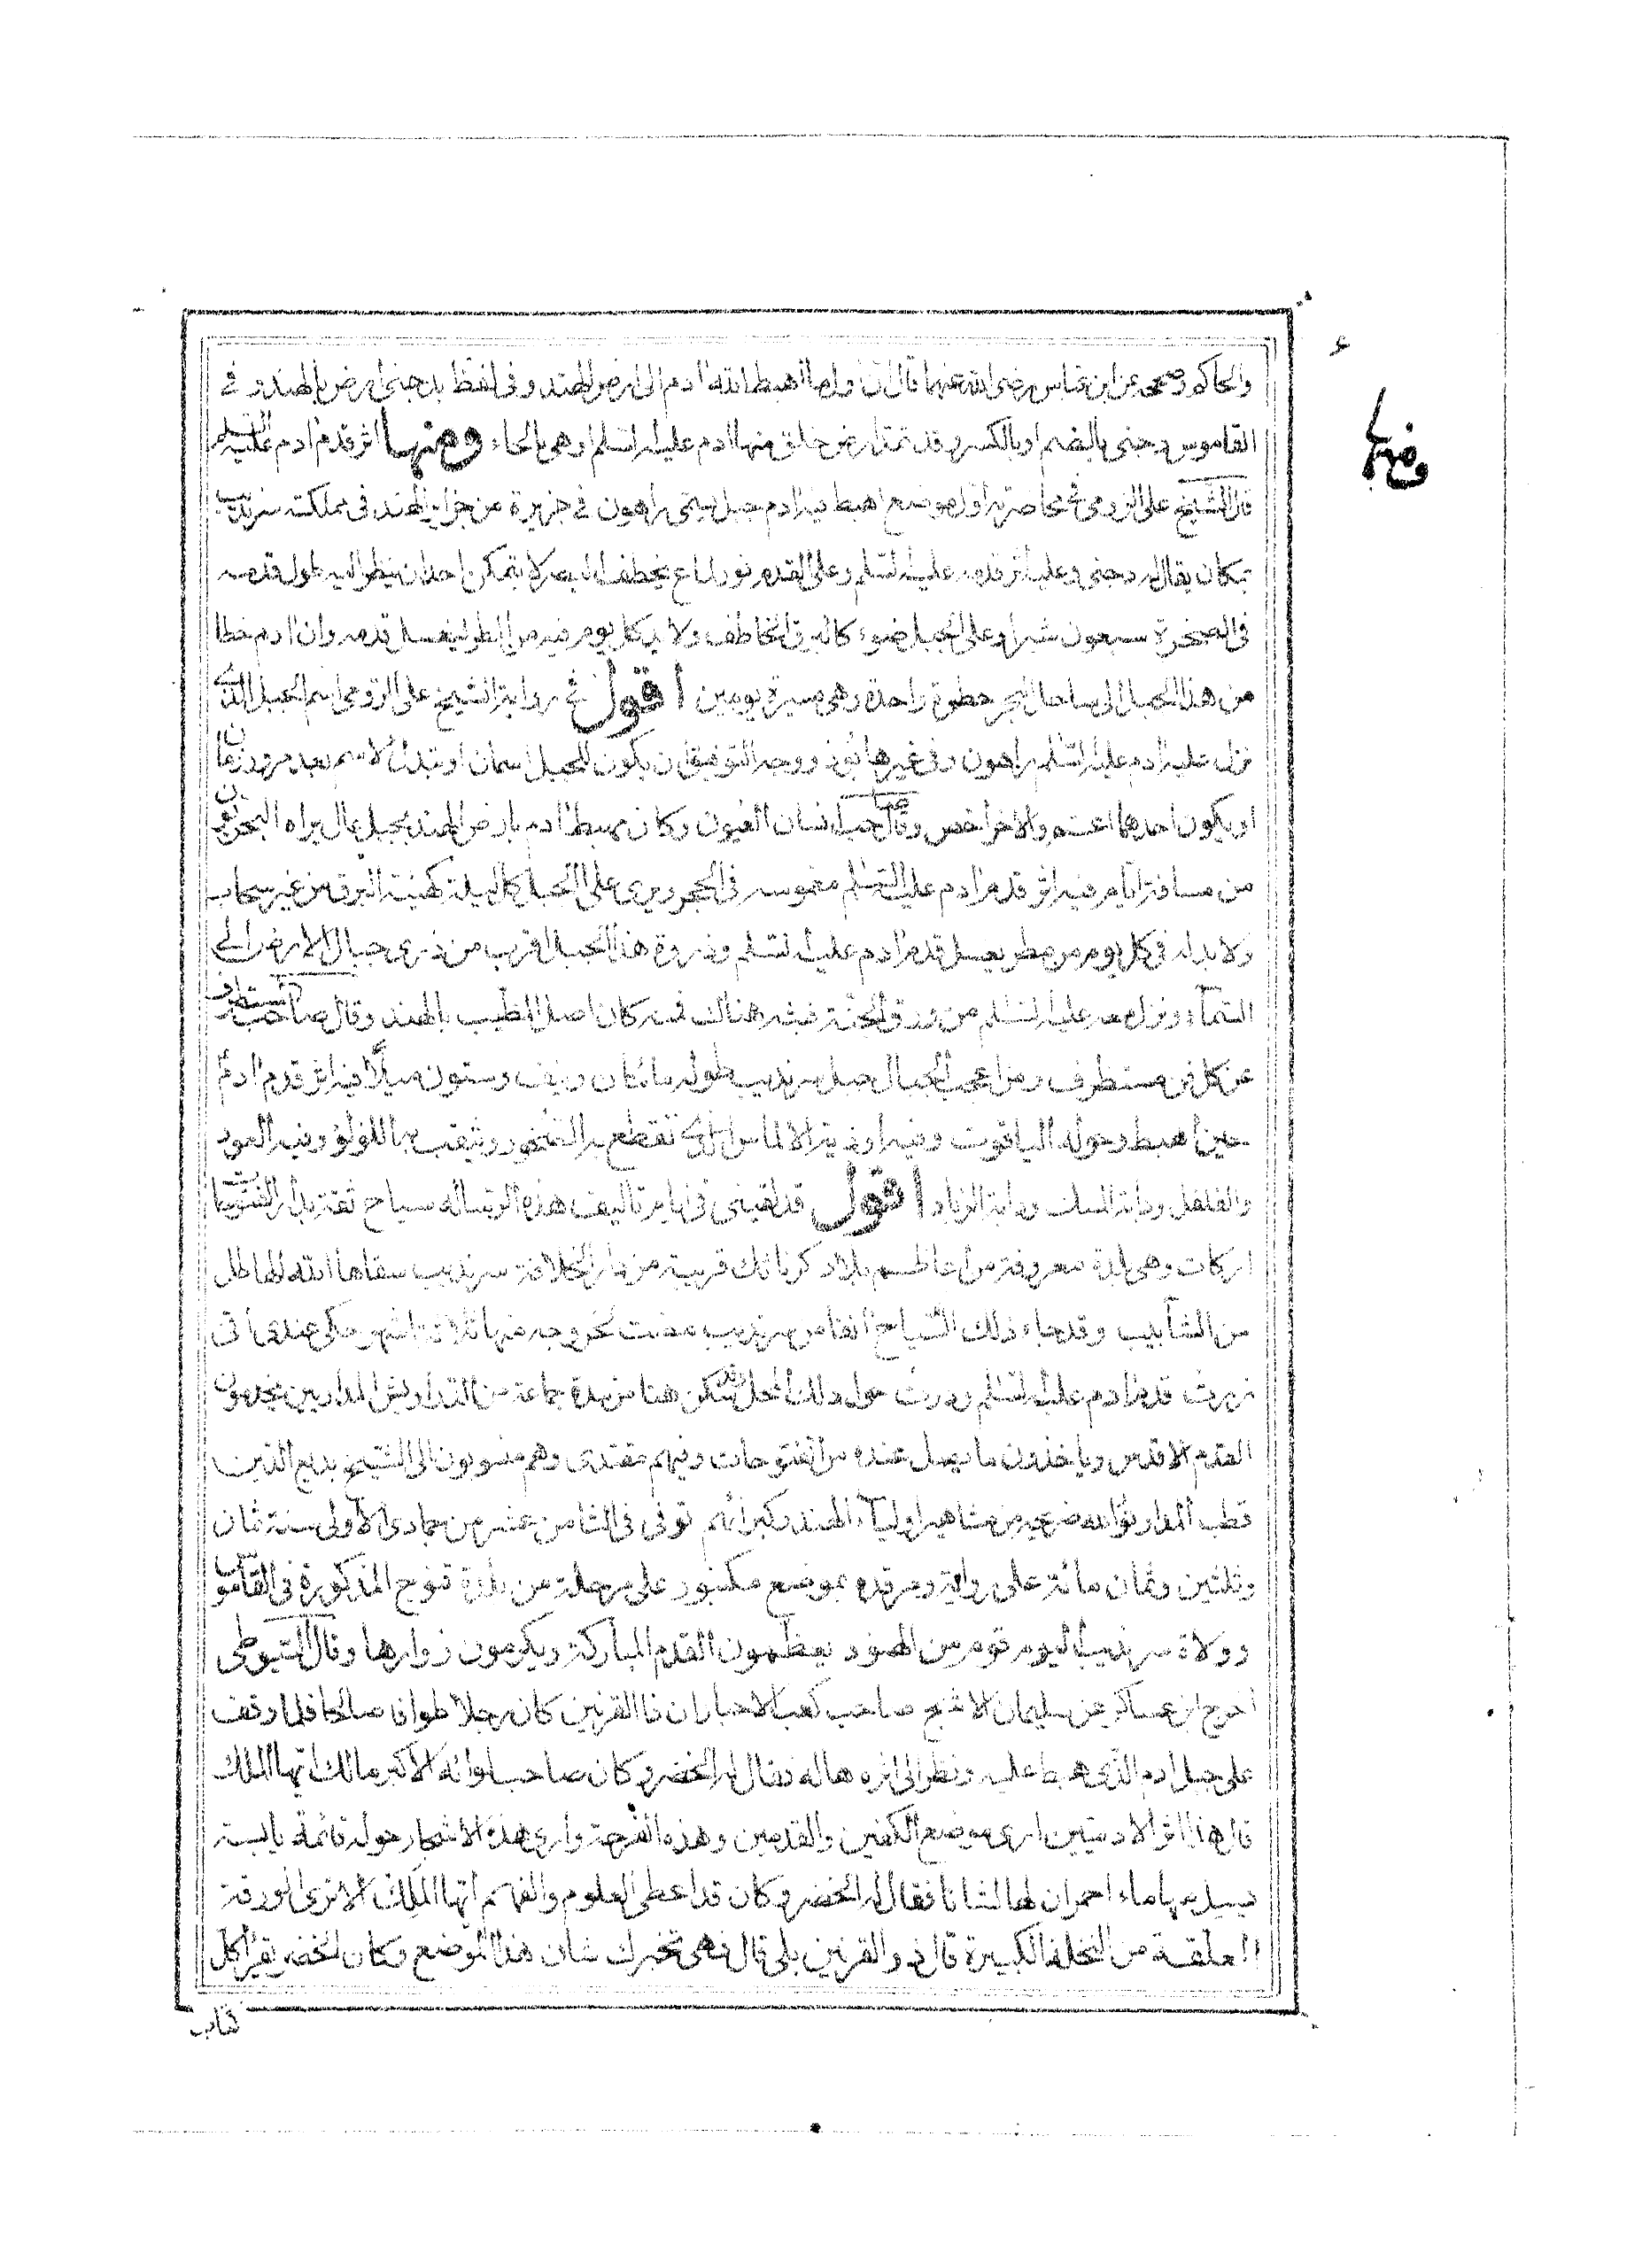 والحاكم وصححه عن ابن عباس رضي الله عنهما قال ان اول ما اهبط الله ادم الى ارض الهند وفي لفظ بدجنى ارض بالهند وفي
القاموس دجنى بالضم او بالكسر وقد تمد ارض خلق منها ادم عليه السلم او هي بالحاء ومنها اثر قدم ادم عليه السلم
قال الشيخ على الرومي في محاضرته اول موضع اهبط فيه ادم جبل يسمى راهون في جزيرة من جزاير الهند في مملكة سرنديب
بمكان يقال له دجنى وعليه اثر قدمه عليه السلم وعلى القدم نور لماع يخطف البصر لا يتمكن احد ان ينظر اليه طول قدمه
في الصخرة سبعون شبرا وعلى الجبل ضوء كالبرق الخاطف ولا بد كل يوم فيه من المطر ليغسل قدمه وان ادم خطا
من هذا الجبل الى ساحل البحر خطوة واحدة وهي مسيرة يومين اقول في رواية الشيخ على الرومي اسم الجبل الذي
نزل عليه ادم عليه السلم راهون وفي غيرها نوذ ووجه التوفيق ان يكون للجبل اسمان او تبدل الاسم بعد مرور زمان
او يكون احدهما اعم والاخر اخص وقال صاحب انسان العيون وكان مهبط ادم بارض الهند بجبل عال يراه البحريون
من مسافة ايام وفيه اثر قدم ادم عليه السلم مغموسة في الحجر ويرى على الجبل كل ليلة كهيئة البرق من غير سحاب
ولا بد له في كل يوم من مطر يغسل قدم ادم عليه السلم وذروة هذا الجبل اقرب من ذرى جبال الارض الى
السماء ونزل معه عليه السلم من ورق الجنة فبثه هناك فمنه كان اصل الطيب بالهند وقال صاحب المستطرف
من كل فن مستطرف ومن اعجب الجبال جبل سرنديب طوله مائتان ونيف وستون ميلا فيه اثر قدم ادم
حين اهبط وحوله الياقوت وفيه اودية الالماس الذي تقطع به الصخور ويثقب به اللؤلؤ وفيه العود
والفلفل ودابة المسك ودابة الزباد اقول قد لقيني في ايام تاليف هذه الرسالة سياح ثقة
اركات وهي بلدة معروفة من اعاظم بلاد كرناتك قريبة من دار الخلافة سرنديب سقاها الله الهاطل
من الشآبيب وقد جاء ذلك السياح انفا من سرنديب مضت لخروجه منها ثلاثة اشهر حكى عندي اني
زرت قدم ادم عليه السلم ودرت حول ذلك المحل وقد سكن هنا من مدة جماعة من الدراويش المداريين يخدمون
القدم الاقدس وياخذون ما يصل عنده من الفتوحات وفيهم مقتدى وهم منسوبون الى الشيخ بديع الدين
قطب المدار نور الله ضريحه من مشاهير اولياء الهند وكبرائهم توفي في الثامن عشر من جمادى الاولى سنة ثمان
وثلثين وثمان مائة على رواية ومرقده بموضع مكنبور على مرحلة من بلدة قنوج المذكورة في القاموس
وولاة سرنديب اليوم قوم من الهنود يعظمون القدم المباركة ويكرمون زوارها وقال السيوطي
اخرج ابن عساكر عن سليمان الاشج صاحب كعب الاحبار ان ذا القرنين كان رجلا طوافا صالحا فلما وقف
على جبل ادم الذي هبط عليه ونظر الى اثره هاله فقال له الخضر وكان صاحب لوائه الاكبر مالك ايها الملك
قال هذا اثر الادميين ارى موضع الكفين والقدمين وهذه القرحة وارى هذه الاشجار حوله قائمة يابسة
يسيل منها ماء احمر ان لها لشانا فقال له الخضر وكان قد اعطي العلوم والفهم ايها الملك الا ترى الورقة
المعلقة من النخلة الكبيرة قال ذو القرنين بلى قال فهي تخبرك شان هذا الموضع وكان الخضر يقرأ كل
كتاب
ومنها